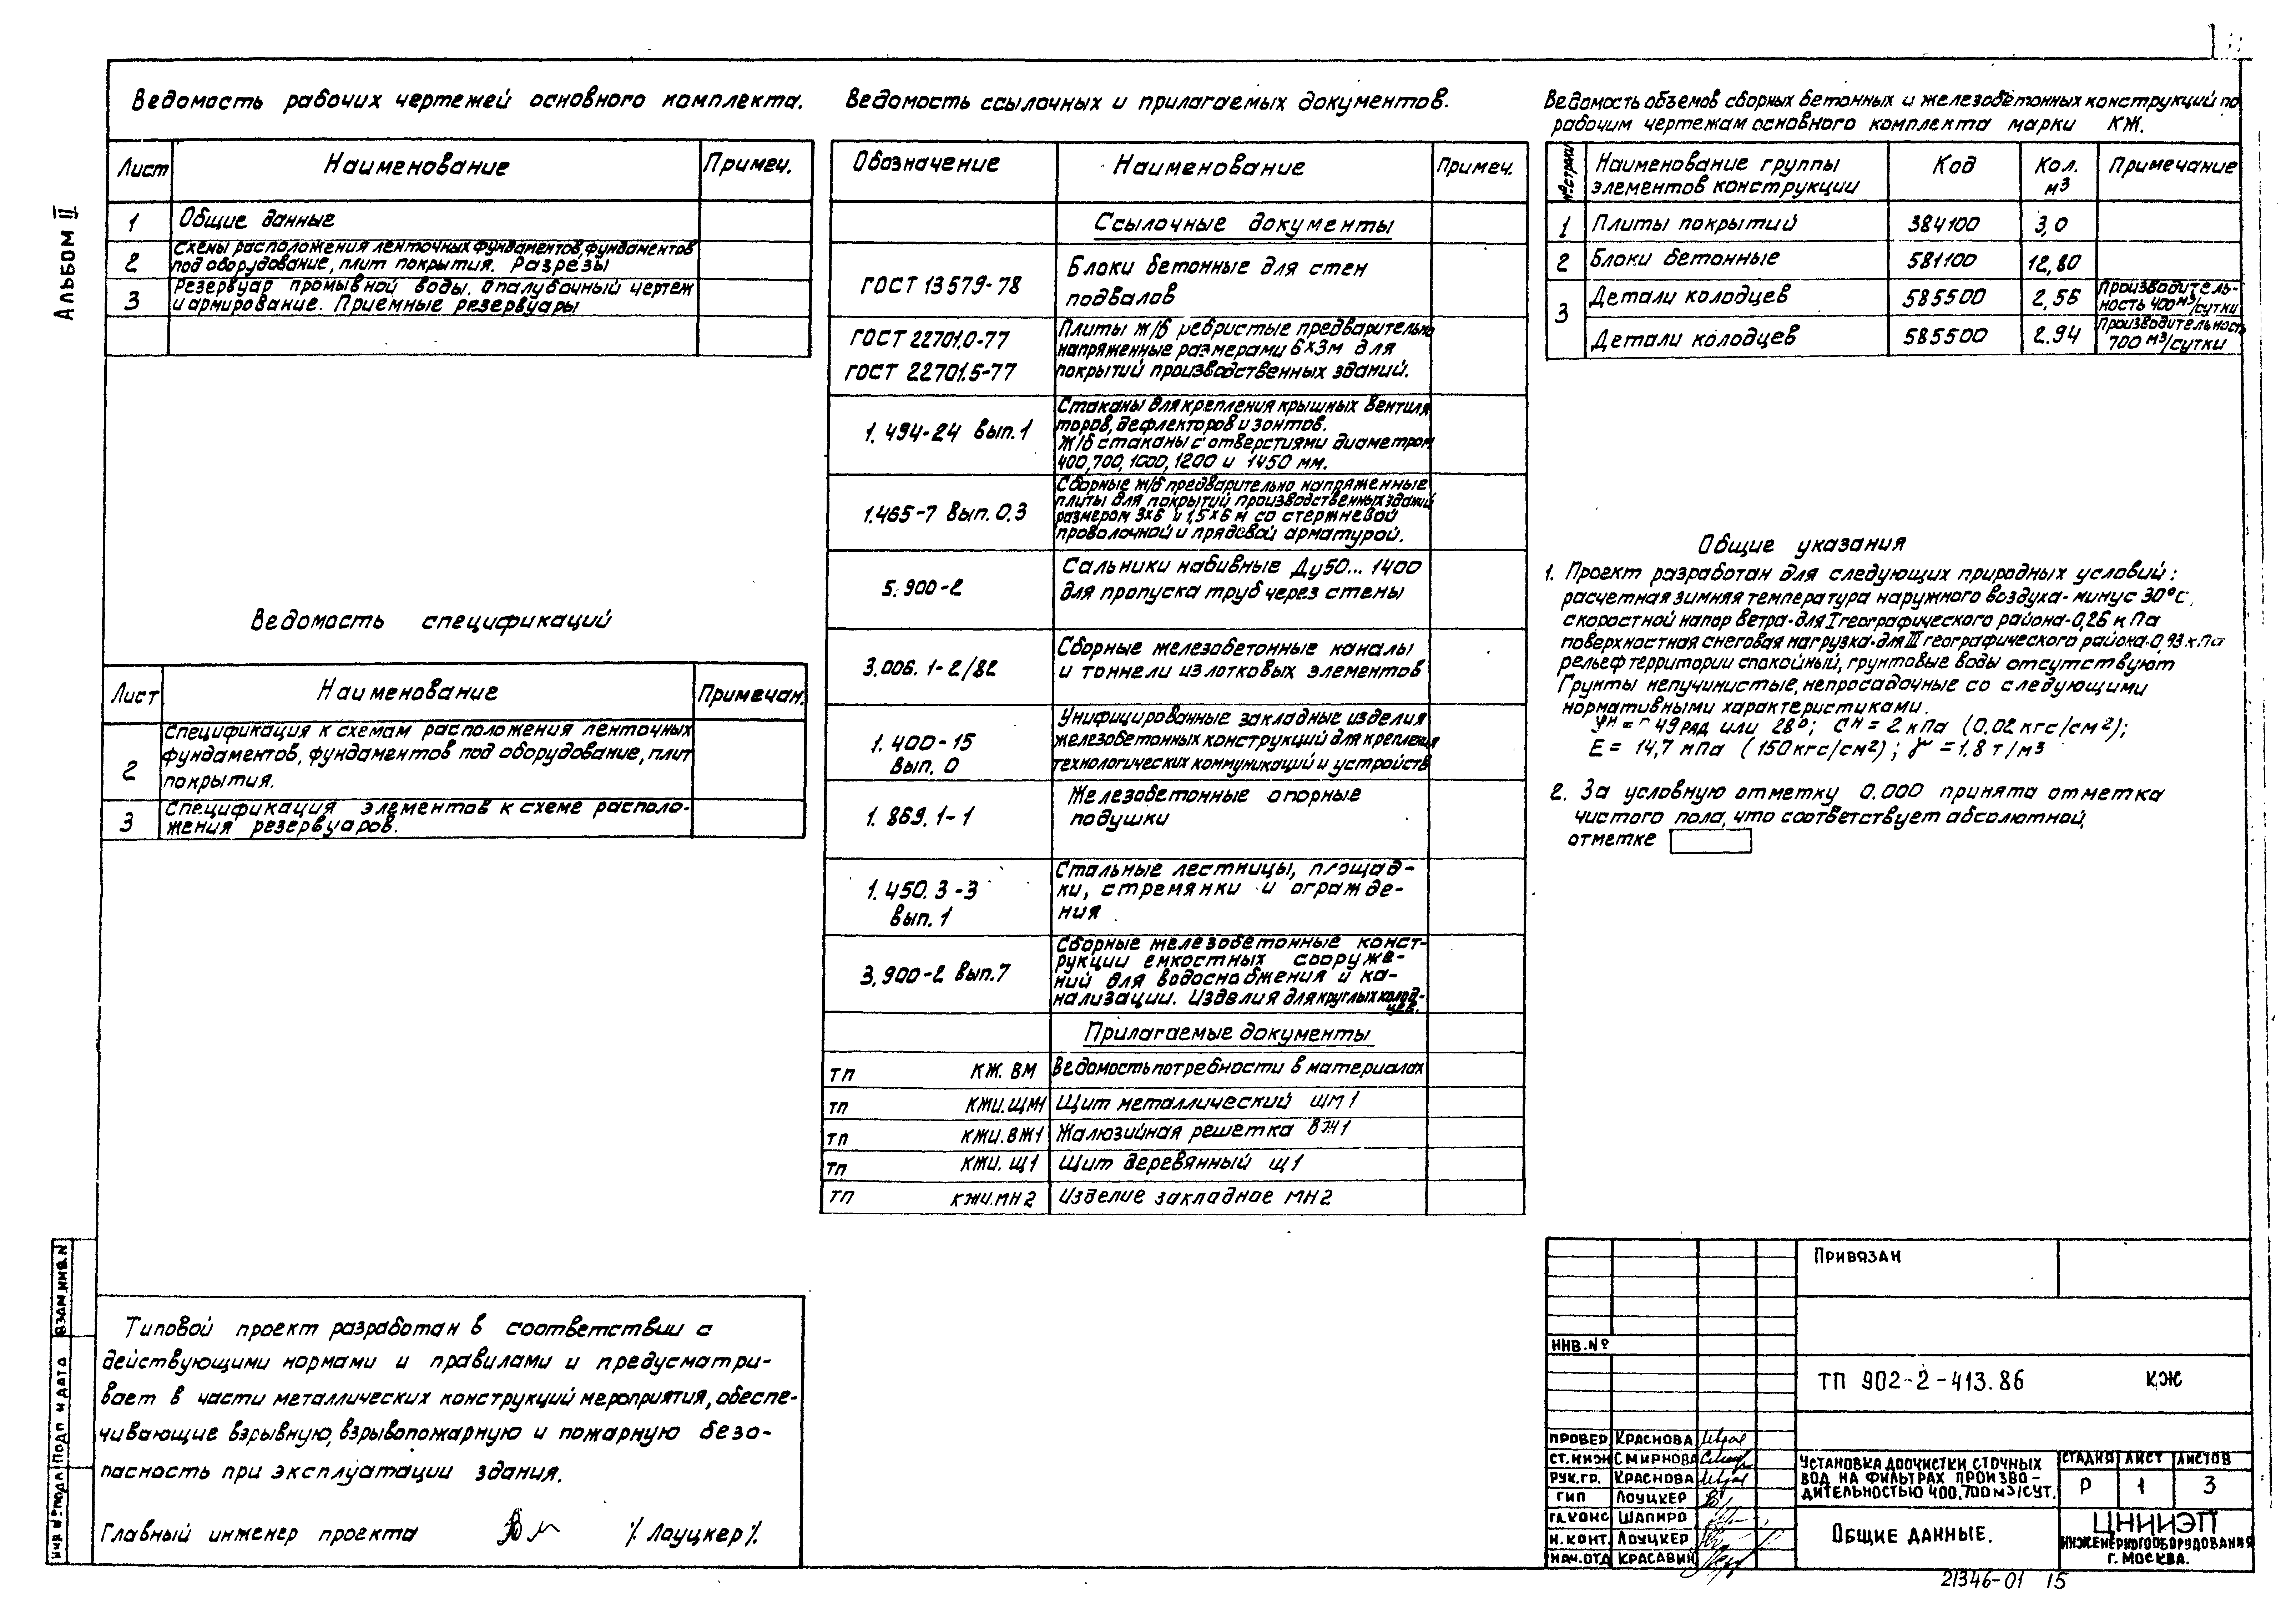 Альбом II
Ведомость рабочих чертежей основного комплекта.
Лист Наименование Примеч.
1 Общие данные
2 Схемы расположения ленточных фундаментов, фундаментов
под оборудование, плит покрытия. Разрезы
3 Резервуар промывной воды. Опалубочный чертеж
и армирование. Приемные резервуары
Ведомость спецификаций
Лист Наименование Примечан.
2 Спецификация к схемам расположения ленточных
фундаментов, фундаментов под оборудование, плит
покрытия.
3 Спецификация элементов к схеме располо-
жения резервуаров.
Типовой проект разработан в соответствии с
действующими нормами и правилами и предусматри-
вает в части металлических конструкций мероприятия, обеспе-
чивающие взрывную, взрывопожарную и пожарную безо-
пасность при эксплуатации здания.
Главный инженер проекта /Лоуцкер/.
Ведомость ссылочных и прилагаемых документов.
Обозначение Наименование Примеч.
Ссылочные документы
ГОСТ 13579-78 Блоки бетонные для стен
подвалов
ГОСТ 22701.0-77 Плиты ж/б ребристые предварительно
напряженные размерами 6×3м для
ГОСТ 22701.5-77 покрытий производственных зданий.
1.494-24 вып.1 Стаканы для крепления крышных вентиля
торов, дефлекторов и зонтов.
Ж/б стаканы с отверстиями диаметром
400, 700, 1000, 1200 и 1450 мм.
1.465-7 вып. 0.3 Сборные ж/б предварительно напряженные
плиты для покрытий производственных зданий
размером 3×6 и 1,5×6 м со стержневой
проволочной и прядевой арматурой.
5.900-2 Сальники набивные Ду50... 1400
для пропуска труб через стены
3.006.1-2/82 Сборные железобетонные каналы
и тоннели из лотковых элементов
1.400-15 Унифицированные закладные изделия
вып. 0 железобетонных конструкций для крепления
технологических коммуникаций и устройств
1.869.1-1 Железобетонные опорные
подушки
1.450.3-3 Стальные лестницы, площад-
вып.1 ки, стремянки и огражде-
ния.
3.900-2 вып.7 Сборные железобетонные конст-
рукции емкостных сооруже-
ний для водоснабжения и ка-
нализации. Изделия для круглых колод-
цев.
Прилагаемые документы
ТП КЖ. ВМ Ведомость потребности в материалах
ТП КЖИ.ЩМ1 Щит металлический ЩМ1
ТП КЖИ.ВЖ1 Жалюзийная решетка ВЖ1
ТП КЖИ. Щ1 Щит деревянный Щ1
ТП КЖИ.МН2 Изделие закладное МН2
Ведомость обземов сборных бетонных и железобетонных конструкций по
рабочим чертежам основного комплекта марки КЖ.
№ строки Наименование группы элементов конструкции Код Кол. м3 Примечание
1 Плиты покрытий 384100 3,0
2 Блоки бетонные 581100 12,80
3 Детали колодцев 585500 2,56 Производитель-
ность 400 м3/сутки
Детали колодцев 585500 2.94 Производительность
700 м3/сутки
Общие указания
1. Проект разработан для следующих природных условий:
расчетная зимняя температура наружного воздуха - минус 30°С,
скоростной напор ветра - для I географического района - 0,26 кПа
поверхностная снеговая нагрузка - для III географического района - 0,93 кПа
рельеф территории спокойный, грунтовые воды отсутствуют
Грунты непучинистые, непросадочные со следующими
нормативными характеристиками.
49 рад или 28°; Cн = 2 кПа (0.02 кгс/см2);
E = 14,7 мПа (150кгс/см2); γ = 1.8 т/м3
2. За условную отметку 0.000 принята отметка
чистого пола, что соответствует абсолютной
отметке
Привязан
ИНВ.№
ТП 902-2-413.86 КЖ
ПРОВЕР. КРАСНОВА
СТ.ИНЖ СМИРНОВА
РУК.ГР. КРАСНОВА
ГИП ЛОУЦКЕР
ГЛ.КОНС ШАПИРО
Н.КОНТ. ЛОУЦКЕР
НАЧ.ОТД КРАСАВИН
УСТАНОВКА ДООЧИСТКИ СТОЧНЫХ
ВОД НА ФИЛЬТРАХ ПРОИЗВО-
ДИТЕЛЬНОСТЬЮ 400,700 М3/СУТ.
СТАДИЯ ЛИСТ ЛИСТОВ
Р 1 3
ОБЩИЕ ДАННЫЕ.
ЦНИИЭП
ИНЖЕНЕРНОГО ОБОРУДОВАНИЯ
Г. МОСКВА.
21346-01 15
ИНВ № ПОДЛ ПОДП И ДАТА ВЗАМ.ИНВ.N